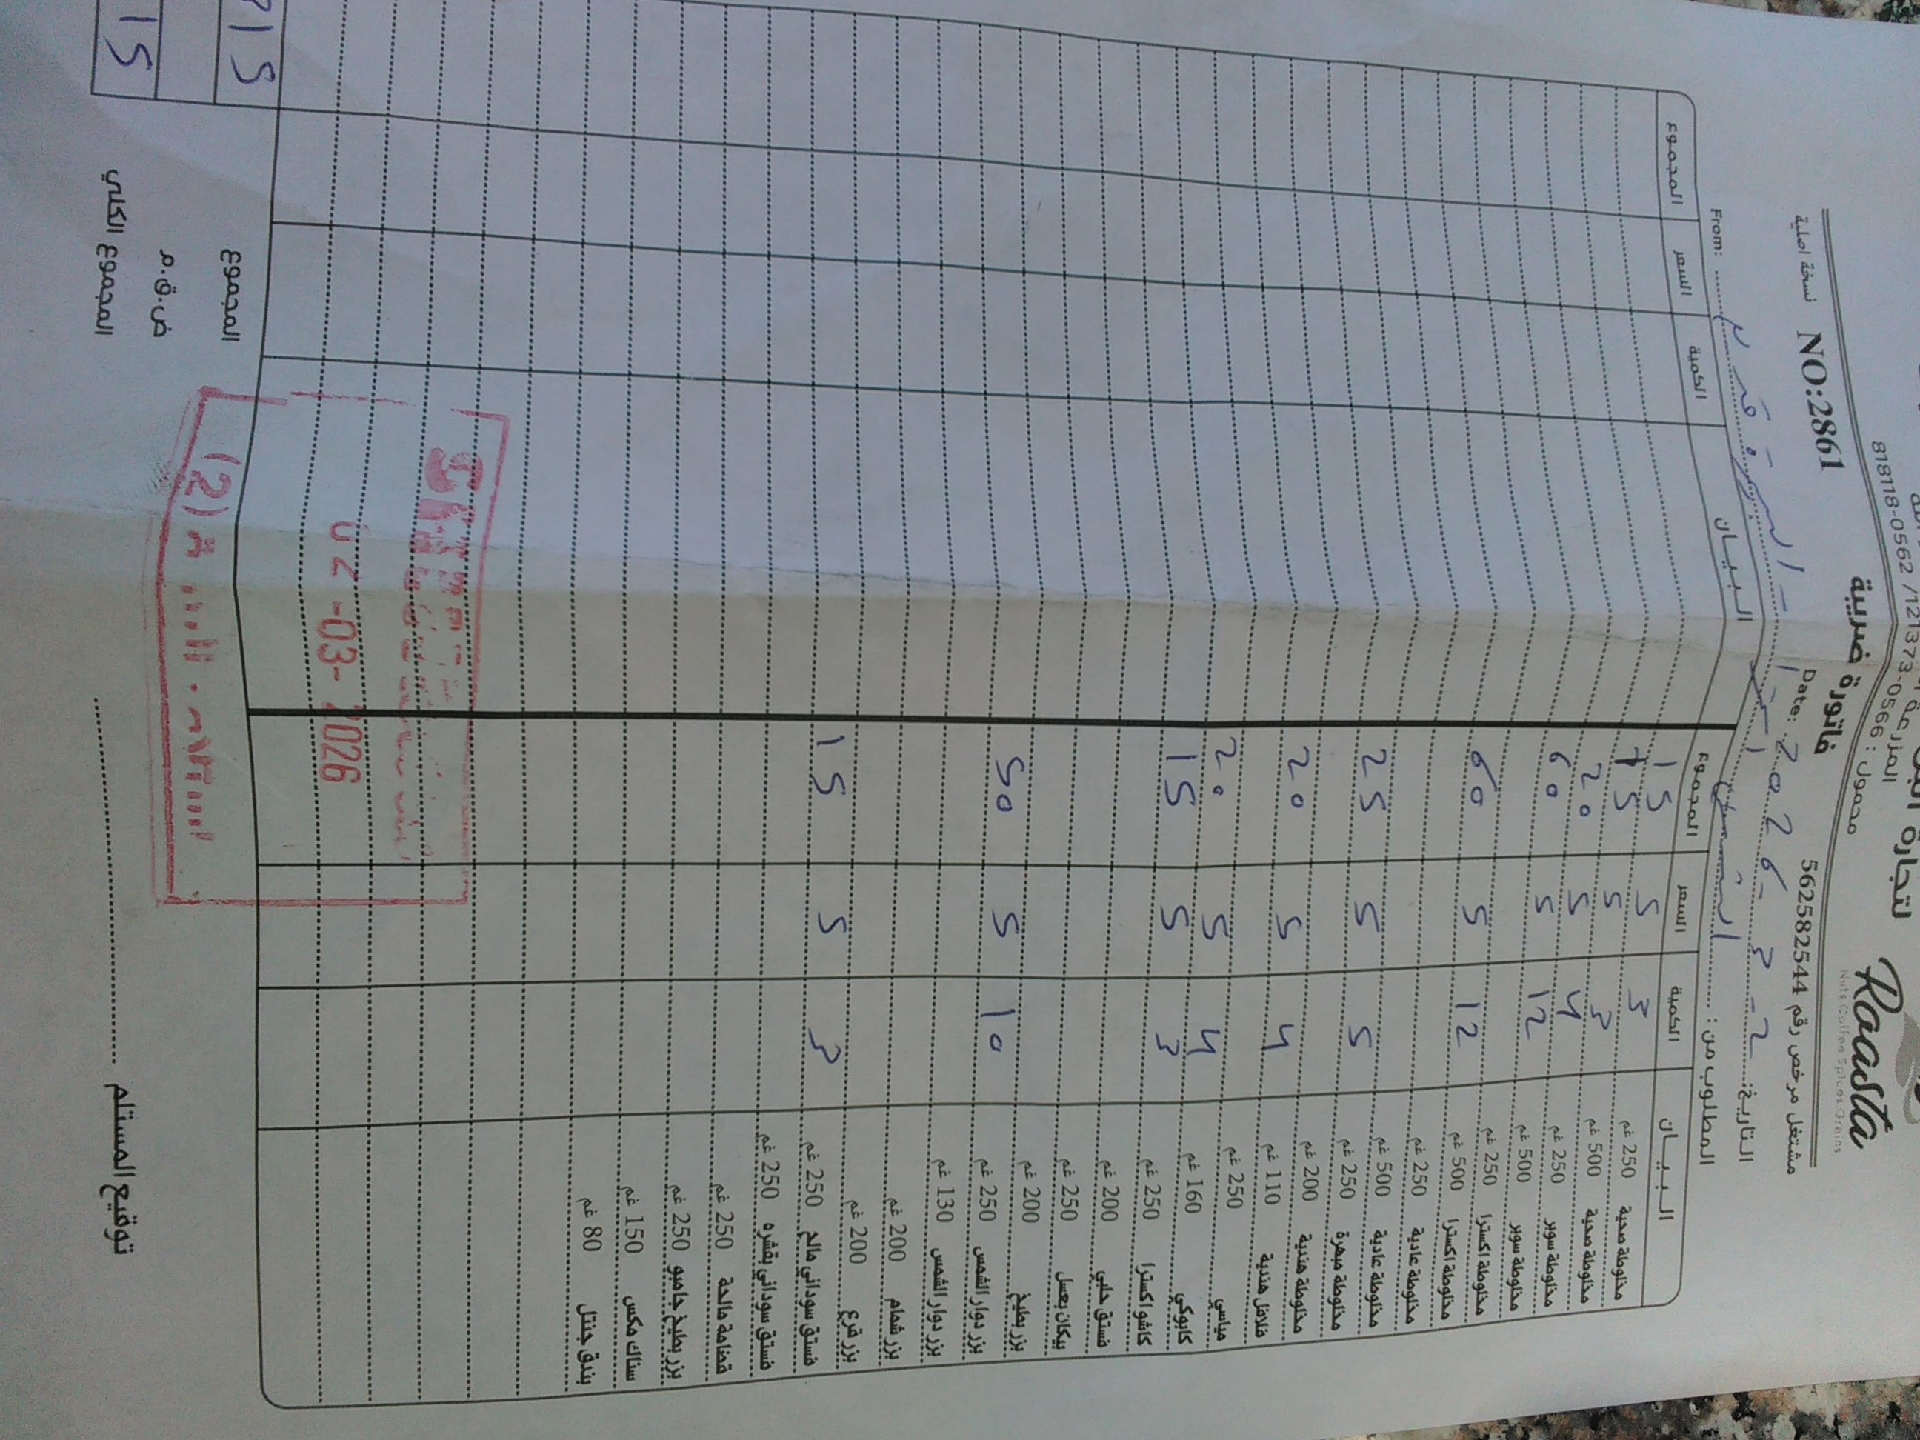 لتجارة
Roasta
Nuts Coffee Spices Grains
محمول : 0566-121373 / 0562-818118
فاتورة ضريبية
مشتغل مرخص رقم 562582544
نسخة اصلية NO:2861
التاريخ: 2-3-2026 Date:
المطلوب من: From:
البيان الكمية السعر المجموع البيان الكمية السعر المجموع
مخلوطة صحية 250 غم 3 5 15
مخلوطة صحية 500 غم 3 5 15
مخلوطة سوبر 250 غم 4 5 20
مخلوطة سوبر 500 غم 12 5 60
مخلوطة اكسترا 250 غم
مخلوطة اكسترا 500 غم 12 5 60
مخلوطة عادية 250 غم
مخلوطة عادية 500 غم
مخلوطة مبهرة 250 غم 5 5 25
مخلوطة هندية 200 غم
فلافل هندية 110 غم 4 5 20
مياسي 250 غم 4 5 20
كابوكي 160 غم 3 5 15
كاشو اكسترا 250 غم
فستق حلبي 200 غم
بيكان بعسل 250 غم
بزر بطيخ 200 غم
بزر دوار الشمس 250 غم 10 5 50
بزر دوار الشمس 130 غم
بزر شمام 200 غم
بزر قرع 200 غم
فستق سوداني مالح 250 غم 3 5 15
فستق سوداني بقشره 250 غم
قضامة مالحة 250 غم
بزر بطيخ جامبو 250 غم
سناك مكس 150 غم
بندق جنتل 80 غم
02-03-2026
(2)
المجموع
ض.ق.م
المجموع الكلي
توقيع المستلم